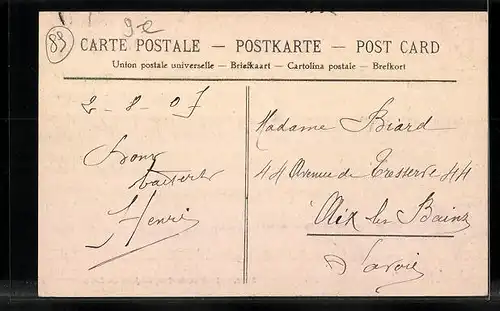 89
9e
CARTE POSTALE — POSTKARTE — POST CARD
Union postale universelle — Briefkaart — Cartolina postale — Brefkort
2-8-07
Bons
baisers
Henri
Madame Biard
44 Avenue de Tresserve 44
Aix les Bains
Savoie